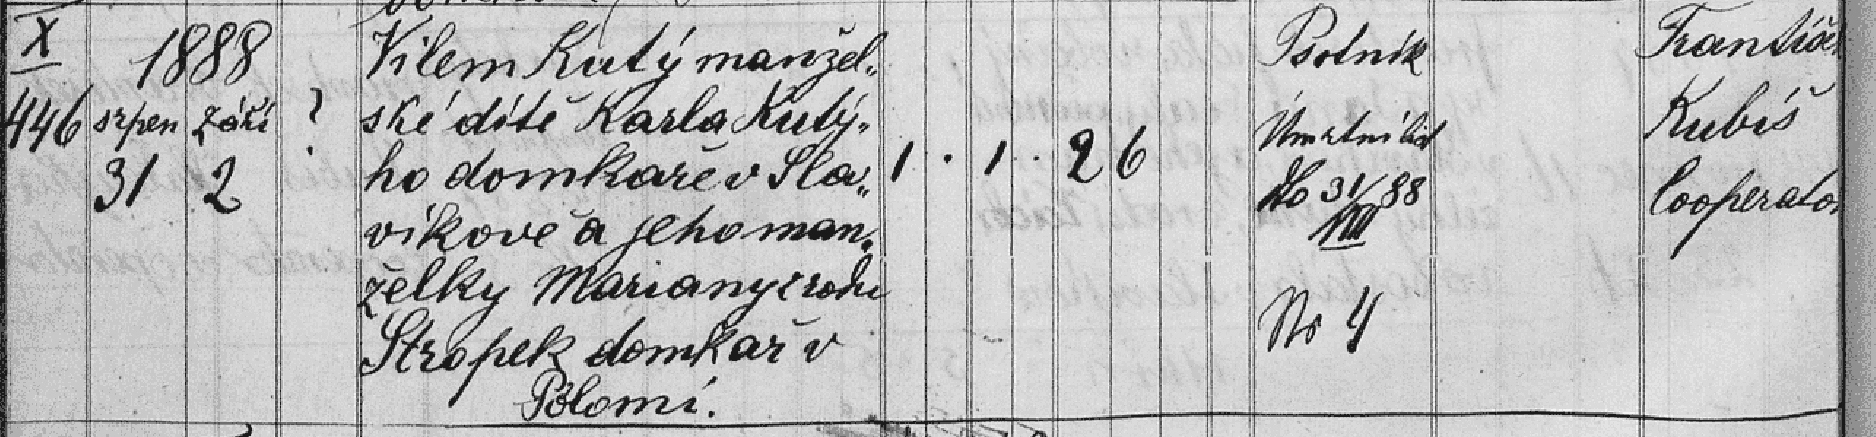 X
446
1888
srpen září
31 2
?
Vilem Kutý manžel„
ské dítě Karla Kutý„
ho domkaře v Sla„
víkově a jeho man„
želky Mariany z rodu
Stropek domkař v
Polomí.
1 · 1 · 26
Psotník
Úmrtní list
do 31/88
VIII
No 4
František
Kubíš
Cooperator